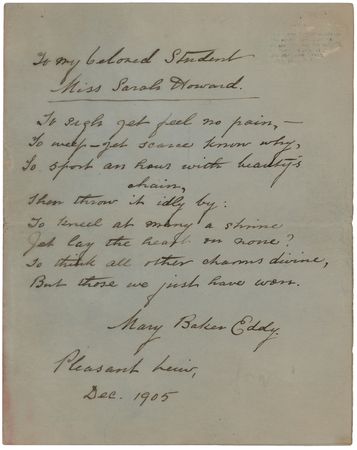 To my beloved Student
Miss Sarah Howard.
To sigh yet feel no pain,—
To weep—yet scarce know why,
To sport an hour with beauty's
chain,
Then throw it idly by:
To kneel at many a shrine
Yet lay the heart on none?
To think all other charms divine,
But those we just have won.
Mary Baker Eddy.
Pleasant View,
Dec. 1905